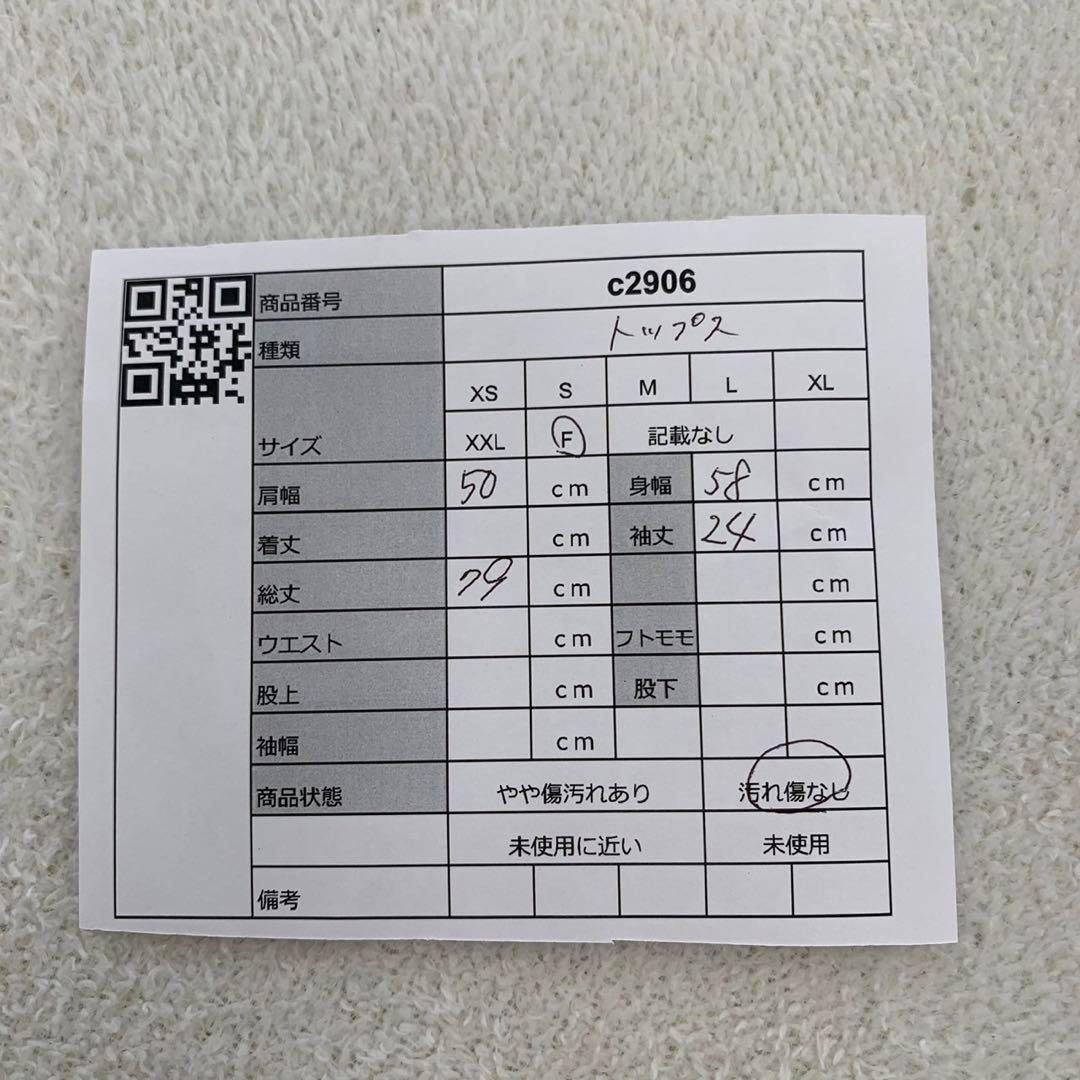 商品番号 c2906
種類 トップス
XS S M L XL
サイズ XXL F 記載なし
肩幅 50 cm 身幅 58 cm
着丈 cm 袖丈 24 cm
総丈 79 cm cm
ウエスト cm フトモモ cm
股上 cm 股下 cm
袖幅 cm
商品状態 やや傷汚れあり 汚れ傷なし
未使用に近い 未使用
備考